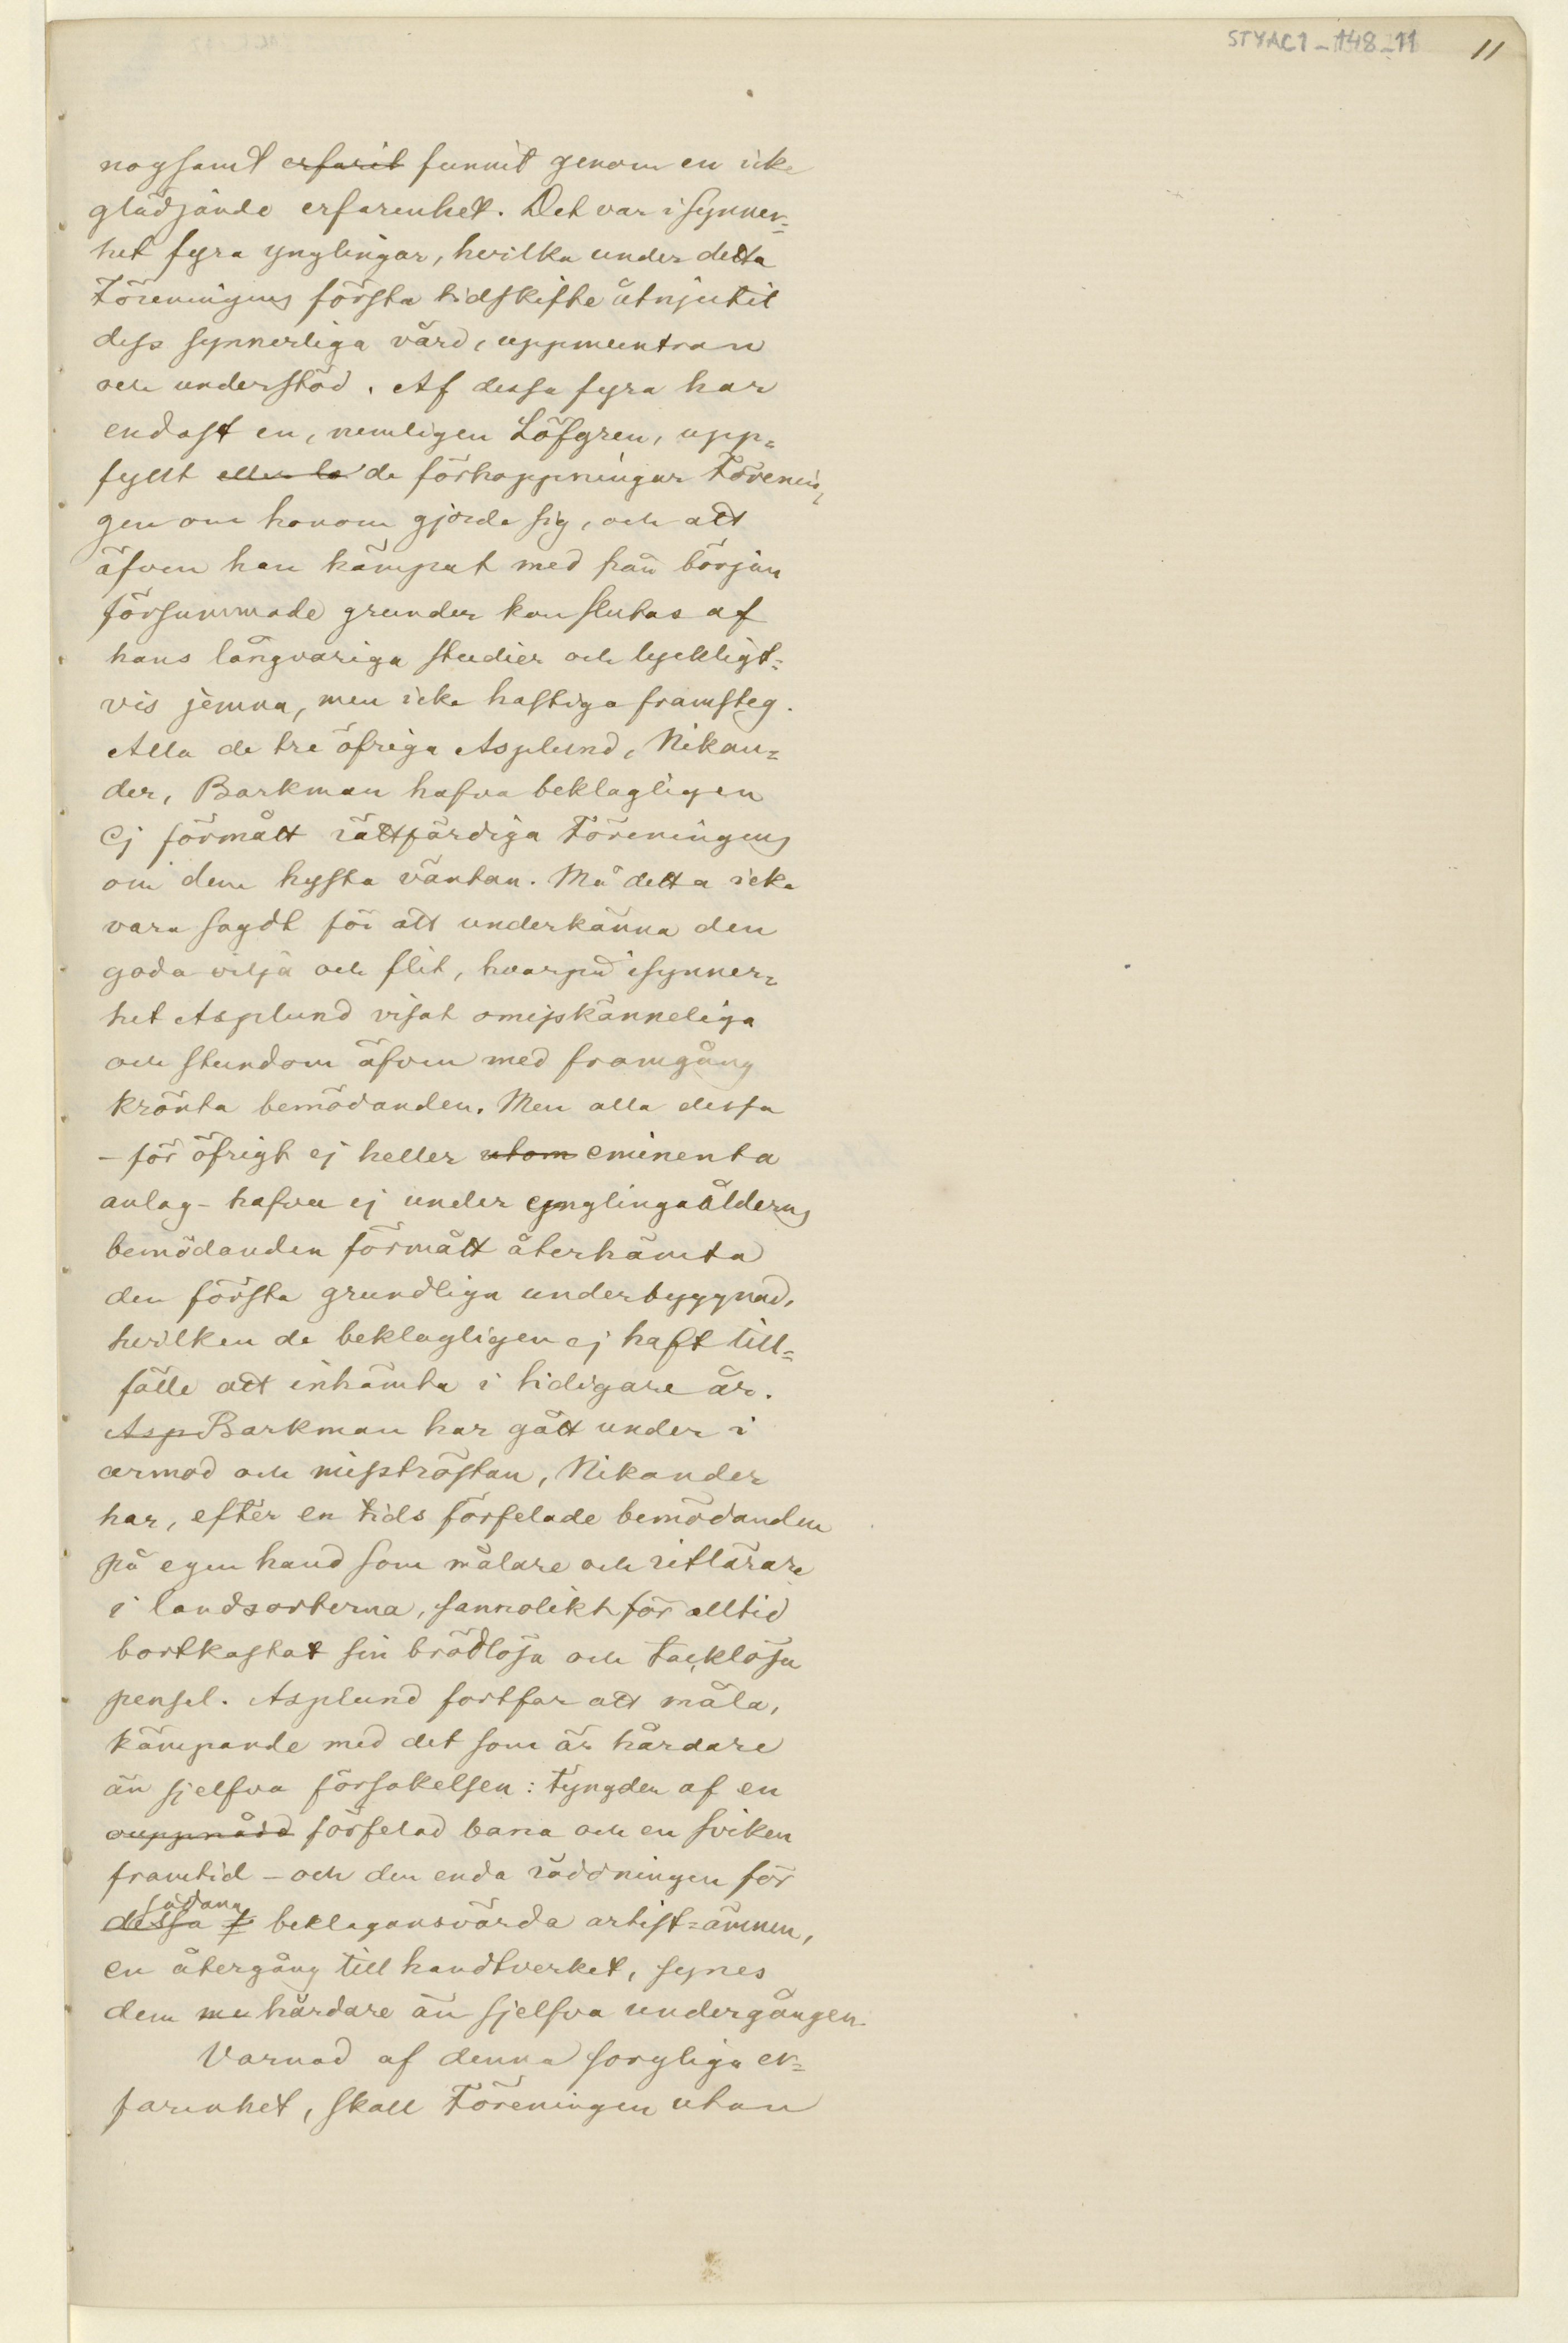 STYAC1_148_11 11
nogsamt ~~erfarit~~ funnit genom en icke
glädjande erfarenhet. Det var i synner=
het fyra ynglingar, hvilka under detta
Föreningens första tidskifte åtnjutit
dess synnerliga vård, uppmuntran
och understöd. Af dessa fyra har
endast en, nemligen Löfgren, upp=
fyllt de förhoppningar Förenin=
gen om honom gjorde sig, och att
äfven han kämpat med från början
försummade grunder kan slutas af
hans långvariga studier och lyckligt=
vis jemna, men icke hastiga framsteg.
Alla de tre öfriga Asplund, Nikan=
der, Barkman hafva beklagligen
ej förmått rättfärdiga Föreningens
om dem hysta väntan. Må detta icke
vara sagdt för att underkänna den
goda vilja och flit, hvarpå isynner=
het Asplund visat omisskänneliga
och stundom äfven med framgång
krönta bemödanden. Men alla dessa
– för öfrigt ej heller ~~utom~~ eminenta
anlag – hafva ej under ynglingaålderns
bemödanden förmått återhämta
den första grundliga underbyggnad,
hvilken de beklagligen ej haft till=
fälle att inhämta i tidigare år.
~~Asp~~ Barkman har gått under i
armod och misströstan, Nikander
har, efter en tids förfelade bemödanden
på egen hand som målare och ritlärare
i landsorterna, sannolikt för alltid
bortkastat sin brödlösa och tacklösa
pensel. Asplund fortfar att måla,
kämpande med det som är hårdare
än sjelfva försakelsen: tyngden af en
~~ouppnådd~~ förfelad bana och en sviken
framtid – och den enda räddningen för
sådana
~~dessa f~~ beklagansvärda artist=ämnen,
en återgång till handtverket, synes
dem ~~me~~ hårdare än sjelfva undergången.
Varnad af denna sorgliga er=
farenhet, skall Föreningen utan